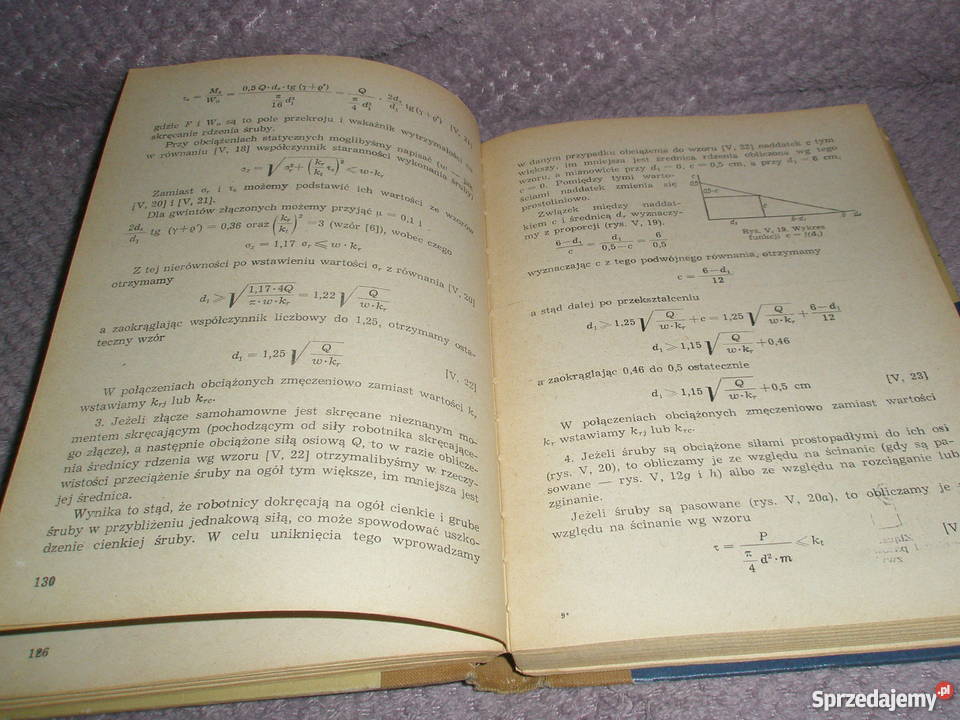 τₛ = Mₛ/Wₒ = 0,5 Q·dₛ·tg (γ+ϱ′) / (π/16 d₁³) = Q/(π/4 d₁²) · 2dₛ/d₁ tg (γ+ϱ′) [V, 21]
gdzie F i Wₒ są to pole przekroju i wskaźnik wytrzymałości na
skręcanie rdzenia śruby.
Przy obciążeniach statycznych moglibyśmy napisać (w — jak
w równaniu [V, 18] współczynnik staranności wykonania śruby)
σz = √(σr² + (kr/kt τs)²) ⩽ w·kr
Zamiast σr i τs możemy podstawić ich wartości ze wzorów
[V, 20] i [V, 21].
Dla gwintów złącznych możemy przyjąć μ = 0,1 i
2dₛ/d₁ tg (γ+ϱ′) = 0,36 oraz (kr/kt)² = 3 (wzór [6]), wobec czego
σz = 1,17 σr ⩽ w · kr
Z tej nierówności po wstawieniu wartości σr z równania [V, 20]
otrzymamy
d₁ ⩾ √(1,17·4Q / π·w·kr) = 1,22 √(Q / w·kr)
a zaokrąglając współczynnik liczbowy do 1,25, otrzymamy osta-
teczny wzór
d₁ = 1,25 √(Q / w·kr) [V, 22]
W połączeniach obciążonych zmęczeniowo zamiast wartości kr
wstawiamy krj lub krc.
3. Jeżeli złącze samohamowne jest skręcane nieznanym mo-
mentem skręcającym (pochodzącym od siły robotnika skręcające-
go złącze), a następnie obciążone siłą osiową Q, to w razie oblicze-
nia średnicy rdzenia wg wzoru [V, 22] otrzymalibyśmy w rzeczy-
wistości przeciążenie śruby na ogół tym większe, im mniejsza jest
jej średnica.
Wynika to stąd, że robotnicy dokręcają na ogół cienkie i grube
śruby w przybliżeniu jednakową siłą, co może spowodować uszko-
dzenie cienkiej śruby. W celu uniknięcia tego wprowadzamy
130
126
w danym przypadku obciążenia do wzoru [V, 22] naddatek c tym
większy, im mniejsza jest średnica rdzenia obliczona wg tego
wzoru, a mianowicie przy d₁ = 0, c = 0,5 cm, a przy d₁ = 6 cm,
c = 0. Pomiędzy tymi warto-
ściami naddatek zmienia się
prostoliniowo.
Związek między naddat-
kiem c i średnicą dr wyznaczy-
my z proporcji (rys. V, 19).
c
0,5
0,5-c
c
d₁
6-d₁
Rys. V, 19. Wykres
funkcji c = f(d₁)
6−d₁/c = d₁/0,5−c = 6/0,5
wyznaczając c z tego podwójnego równania, otrzymamy
c = 6−d₁/12
a stąd dalej po przekształceniu
d₁ ⩾ 1,25 √(Q / w·kr) + c = 1,25 √(Q / w·kr) + 6−d₁/12
d₁ ⩾ 1,15 √(Q / w·kr) + 0,46
a zaokrąglając 0,46 do 0,5 ostatecznie
d₁ ⩾ 1,15 √(Q / w·kr) + 0,5 cm [V, 23]
W połączeniach obciążonych zmęczeniowo zamiast wartości
kr wstawiamy krj lub krc.
4. Jeżeli śruby są obciążone siłami prostopadłymi do ich osi
(rys. V, 20), to obliczamy je ze względu na ścinanie (gdy są pa-
sowane — rys. V, 12g i h) albo ze względu na rozciąganie lub
zginanie.
Jeżeli śruby są pasowane (rys. V, 20a), to obliczamy je
względu na ścinanie wg wzoru
τ = P / (π/4 d²·m) ⩽ kt [V
9*
Sprzedajemy.pl